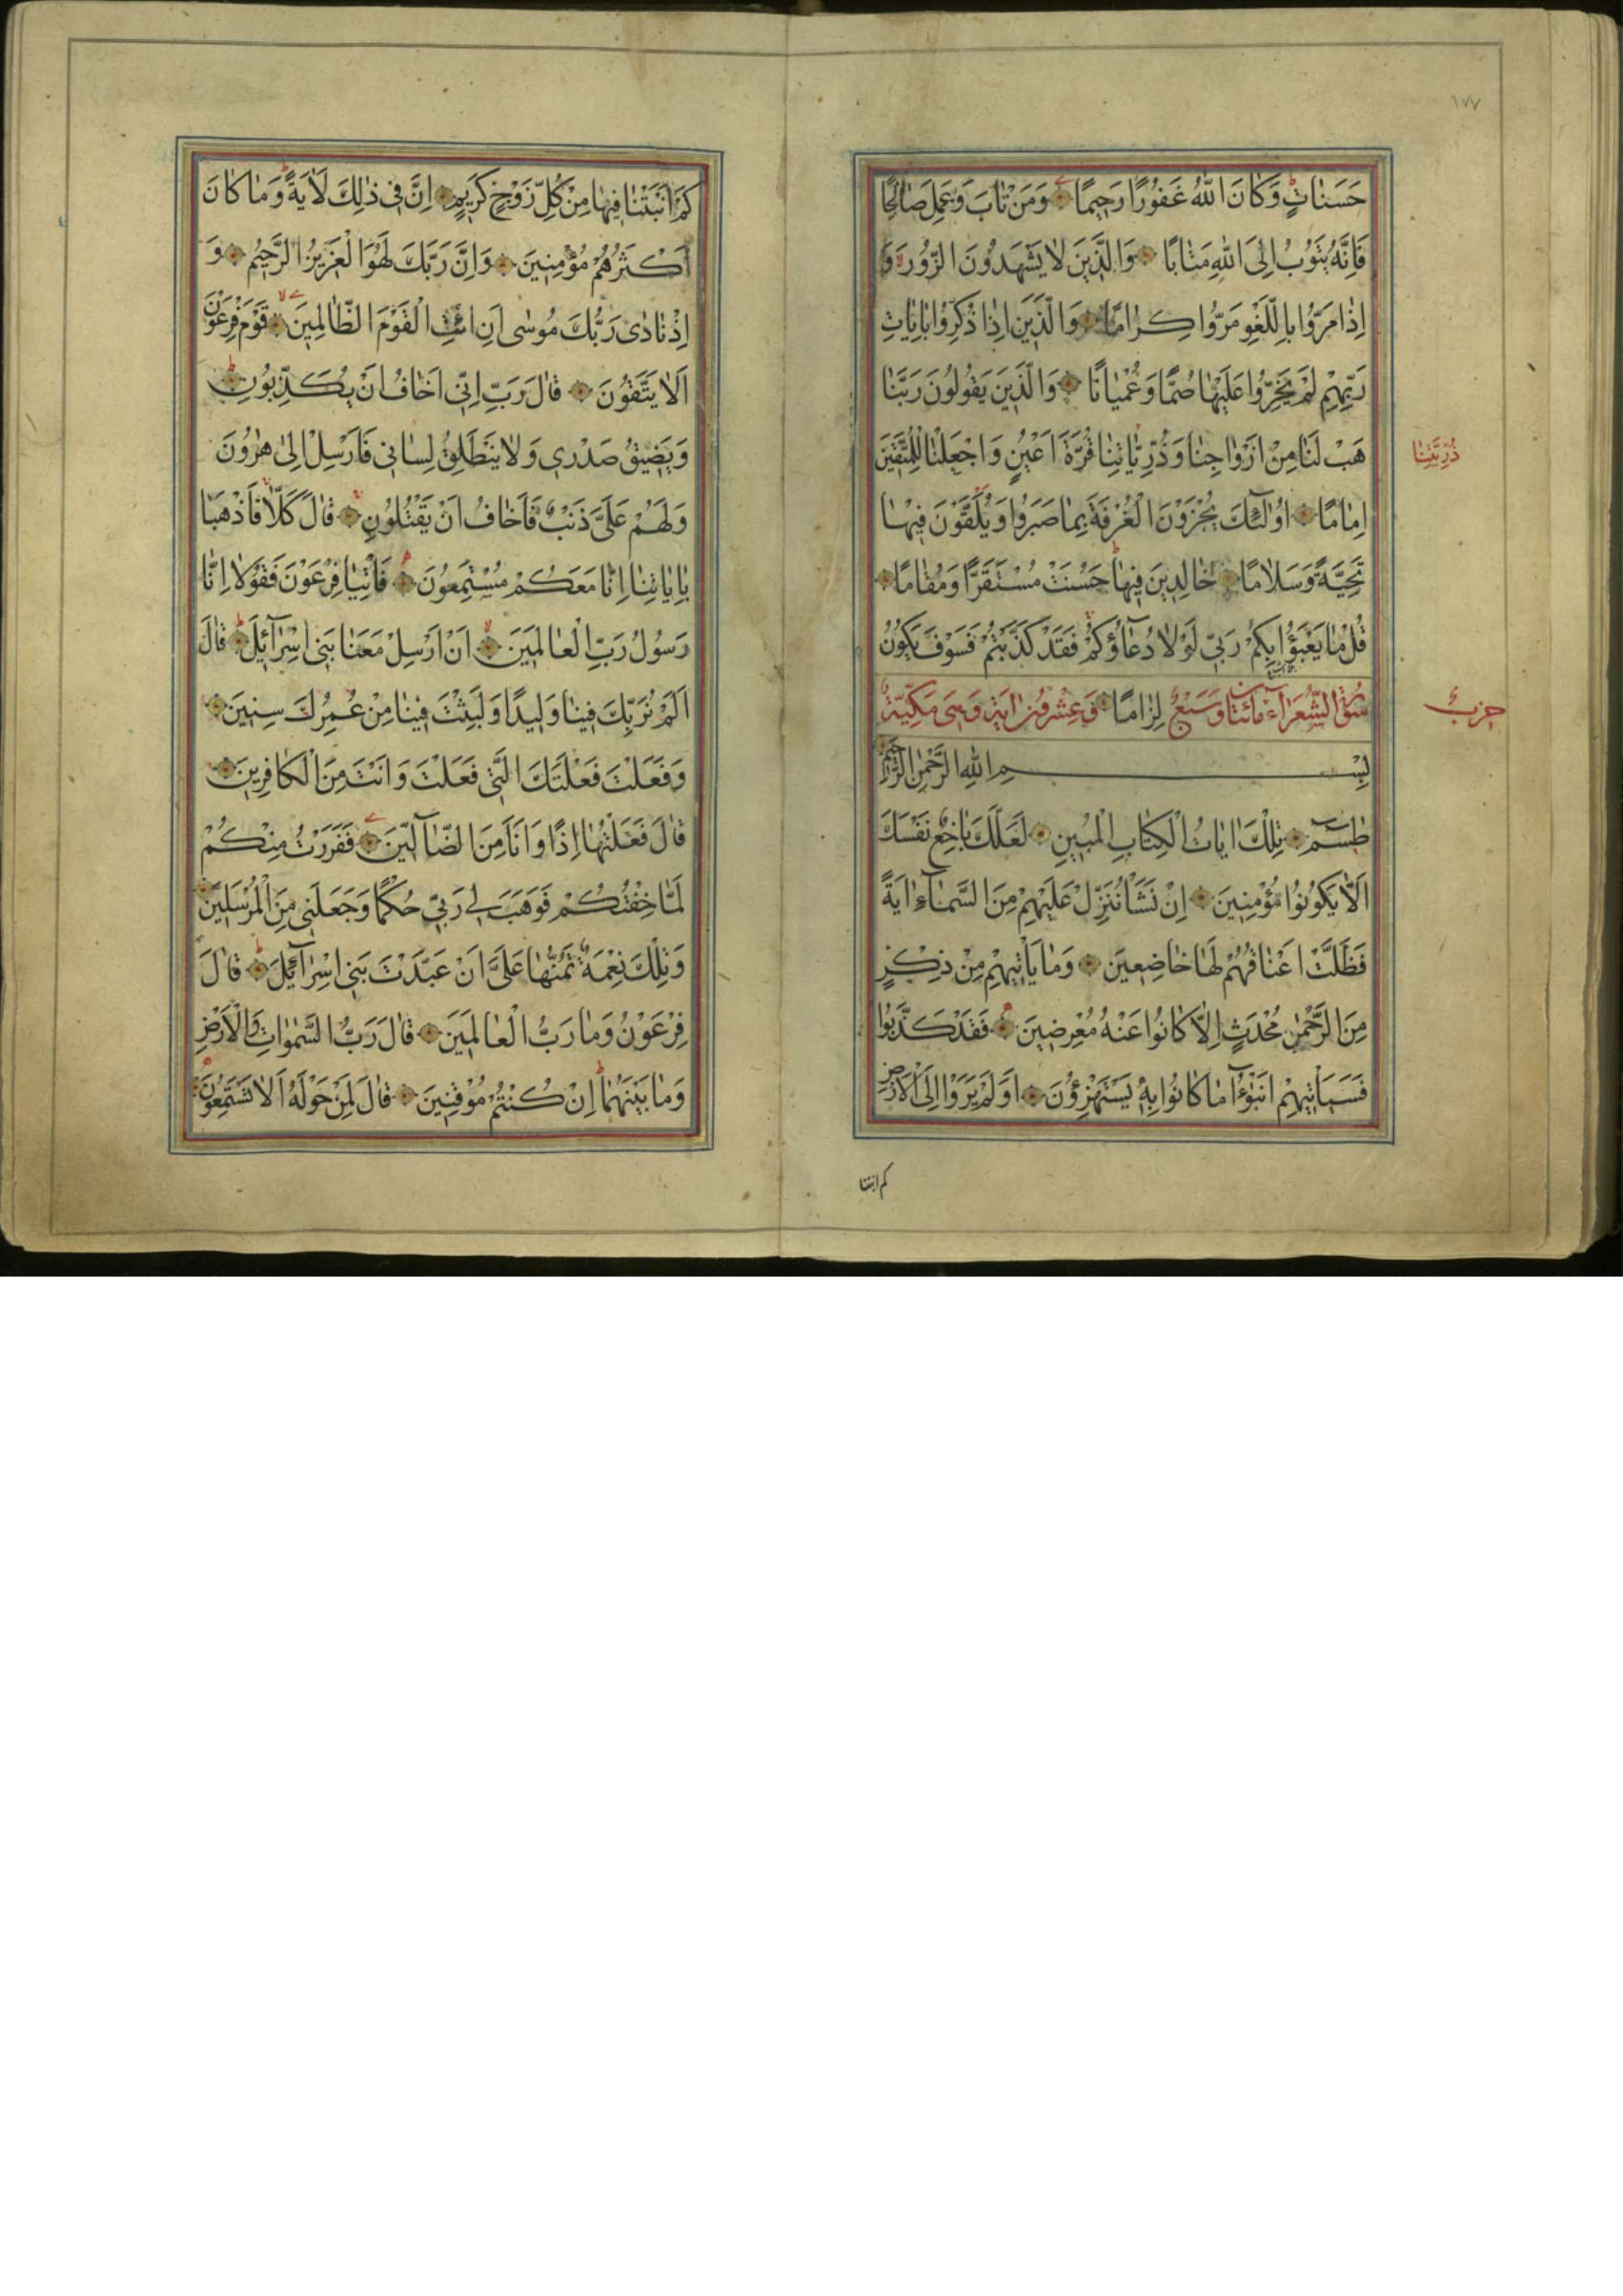 ١٧٧
حَسَنَاتٍ وَكَانَ اللّٰهُ غَفُورًا رَحِيمًا وَمَنْ تَابَ وَعَمِلَ صَالِحًا
فَاِنَّهُ يَتُوبُ اِلَى اللّٰهِ مَتَابًا وَالَّذِينَ لَا يَشْهَدُونَ الزُّورَ وَ
اِذَا مَرُّوا بِاللَّغْوِ مَرُّوا كِرَامًا وَالَّذِينَ اِذَا ذُكِّرُوا بِاٰيَاتِ
رَبِّهِمْ لَمْ يَخِرُّوا عَلَيْهَا صُمًّا وَعُمْيَانًا وَالَّذِينَ يَقُولُونَ رَبَّنَا
هَبْ لَنَا مِنْ اَزْوَاجِنَا وَذُرِّيَّاتِنَا قُرَّةَ اَعْيُنٍ وَاجْعَلْنَا لِلْمُتَّقِينَ
ذُرِّيَّتِنَا
اِمَامًا اُولٰٓئِكَ يُجْزَوْنَ الْغُرْفَةَ بِمَا صَبَرُوا وَيُلَقَّوْنَ فِيهَا
تَحِيَّةً وَسَلَامًا خَالِدِينَ فِيهَا حَسُنَتْ مُسْتَقَرًّا وَمُقَامًا
قُلْ مَا يَعْبَؤُا بِكُمْ رَبِّي لَوْلَا دُعَاؤُكُمْ فَقَدْ كَذَّبْتُمْ فَسَوْفَ يَكُونُ
سُورَةُ الشُّعَرَاءِ مِائَتَانِ وَسَبْعٌ لِزَامًا وَعِشْرُونَ اٰيَةً وَهِيَ مَكِّيَّةٌ
حزب
بِسْمِ اللّٰهِ الرَّحْمٰنِ الرَّحِيمِ
طٰسٓمٓ تِلْكَ اٰيَاتُ الْكِتَابِ الْمُبِينِ لَعَلَّكَ بَاخِعٌ نَفْسَكَ
اَلَّا يَكُونُوا مُؤْمِنِينَ اِنْ نَشَأْ نُنَزِّلْ عَلَيْهِمْ مِنَ السَّمَاءِ اٰيَةً
فَظَلَّتْ اَعْنَاقُهُمْ لَهَا خَاضِعِينَ وَمَا يَأْتِيهِمْ مِنْ ذِكْرٍ
مِنَ الرَّحْمٰنِ مُحْدَثٍ اِلَّا كَانُوا عَنْهُ مُعْرِضِينَ فَقَدْ كَذَّبُوا
فَسَيَأْتِيهِمْ اَنْبٰٓؤُا مَا كَانُوا بِهِ يَسْتَهْزِؤُنَ اَوَلَمْ يَرَوْا اِلَى الْاَرْضِ
كم انبتنا
كَمْ اَنْبَتْنَا فِيهَا مِنْ كُلِّ زَوْجٍ كَرِيمٍ اِنَّ فِي ذٰلِكَ لَاٰيَةً وَمَا كَانَ
اَكْثَرُهُمْ مُؤْمِنِينَ وَاِنَّ رَبَّكَ لَهُوَ الْعَزِيزُ الرَّحِيمُ وَ
اِذْ نَادٰى رَبُّكَ مُوسٰى اَنِ ائْتِ الْقَوْمَ الظَّالِمِينَ قَوْمَ فِرْعَوْنَ
اَلَا يَتَّقُونَ قَالَ رَبِّ اِنِّي اَخَافُ اَنْ يُكَذِّبُونِ
وَيَضِيقُ صَدْرِي وَلَا يَنْطَلِقُ لِسَانِي فَاَرْسِلْ اِلٰى هٰرُونَ
وَلَهُمْ عَلَيَّ ذَنْبٌ فَاَخَافُ اَنْ يَقْتُلُونِ قَالَ كَلَّا فَاذْهَبَا
بِاٰيَاتِنَا اِنَّا مَعَكُمْ مُسْتَمِعُونَ فَأْتِيَا فِرْعَوْنَ فَقُولَا اِنَّا
رَسُولُ رَبِّ الْعَالَمِينَ اَنْ اَرْسِلْ مَعَنَا بَنِي اِسْرَائِيلَ قَالَ
اَلَمْ نُرَبِّكَ فِينَا وَلِيدًا وَلَبِثْتَ فِينَا مِنْ عُمُرِكَ سِنِينَ
وَفَعَلْتَ فَعْلَتَكَ الَّتِي فَعَلْتَ وَاَنْتَ مِنَ الْكَافِرِينَ
قَالَ فَعَلْتُهَا اِذًا وَاَنَا مِنَ الضَّالِّينَ فَفَرَرْتُ مِنْكُمْ
لَمَّا خِفْتُكُمْ فَوَهَبَ لِي رَبِّي حُكْمًا وَجَعَلَنِي مِنَ الْمُرْسَلِينَ
وَتِلْكَ نِعْمَةٌ تَمُنُّهَا عَلَيَّ اَنْ عَبَّدْتَ بَنِي اِسْرَائِيلَ قَالَ
فِرْعَوْنُ وَمَا رَبُّ الْعَالَمِينَ قَالَ رَبُّ السَّمٰوَاتِ وَالْاَرْضِ
وَمَا بَيْنَهُمَا اِنْ كُنْتُمْ مُوقِنِينَ قَالَ لِمَنْ حَوْلَهُ اَلَا تَسْتَمِعُونَ